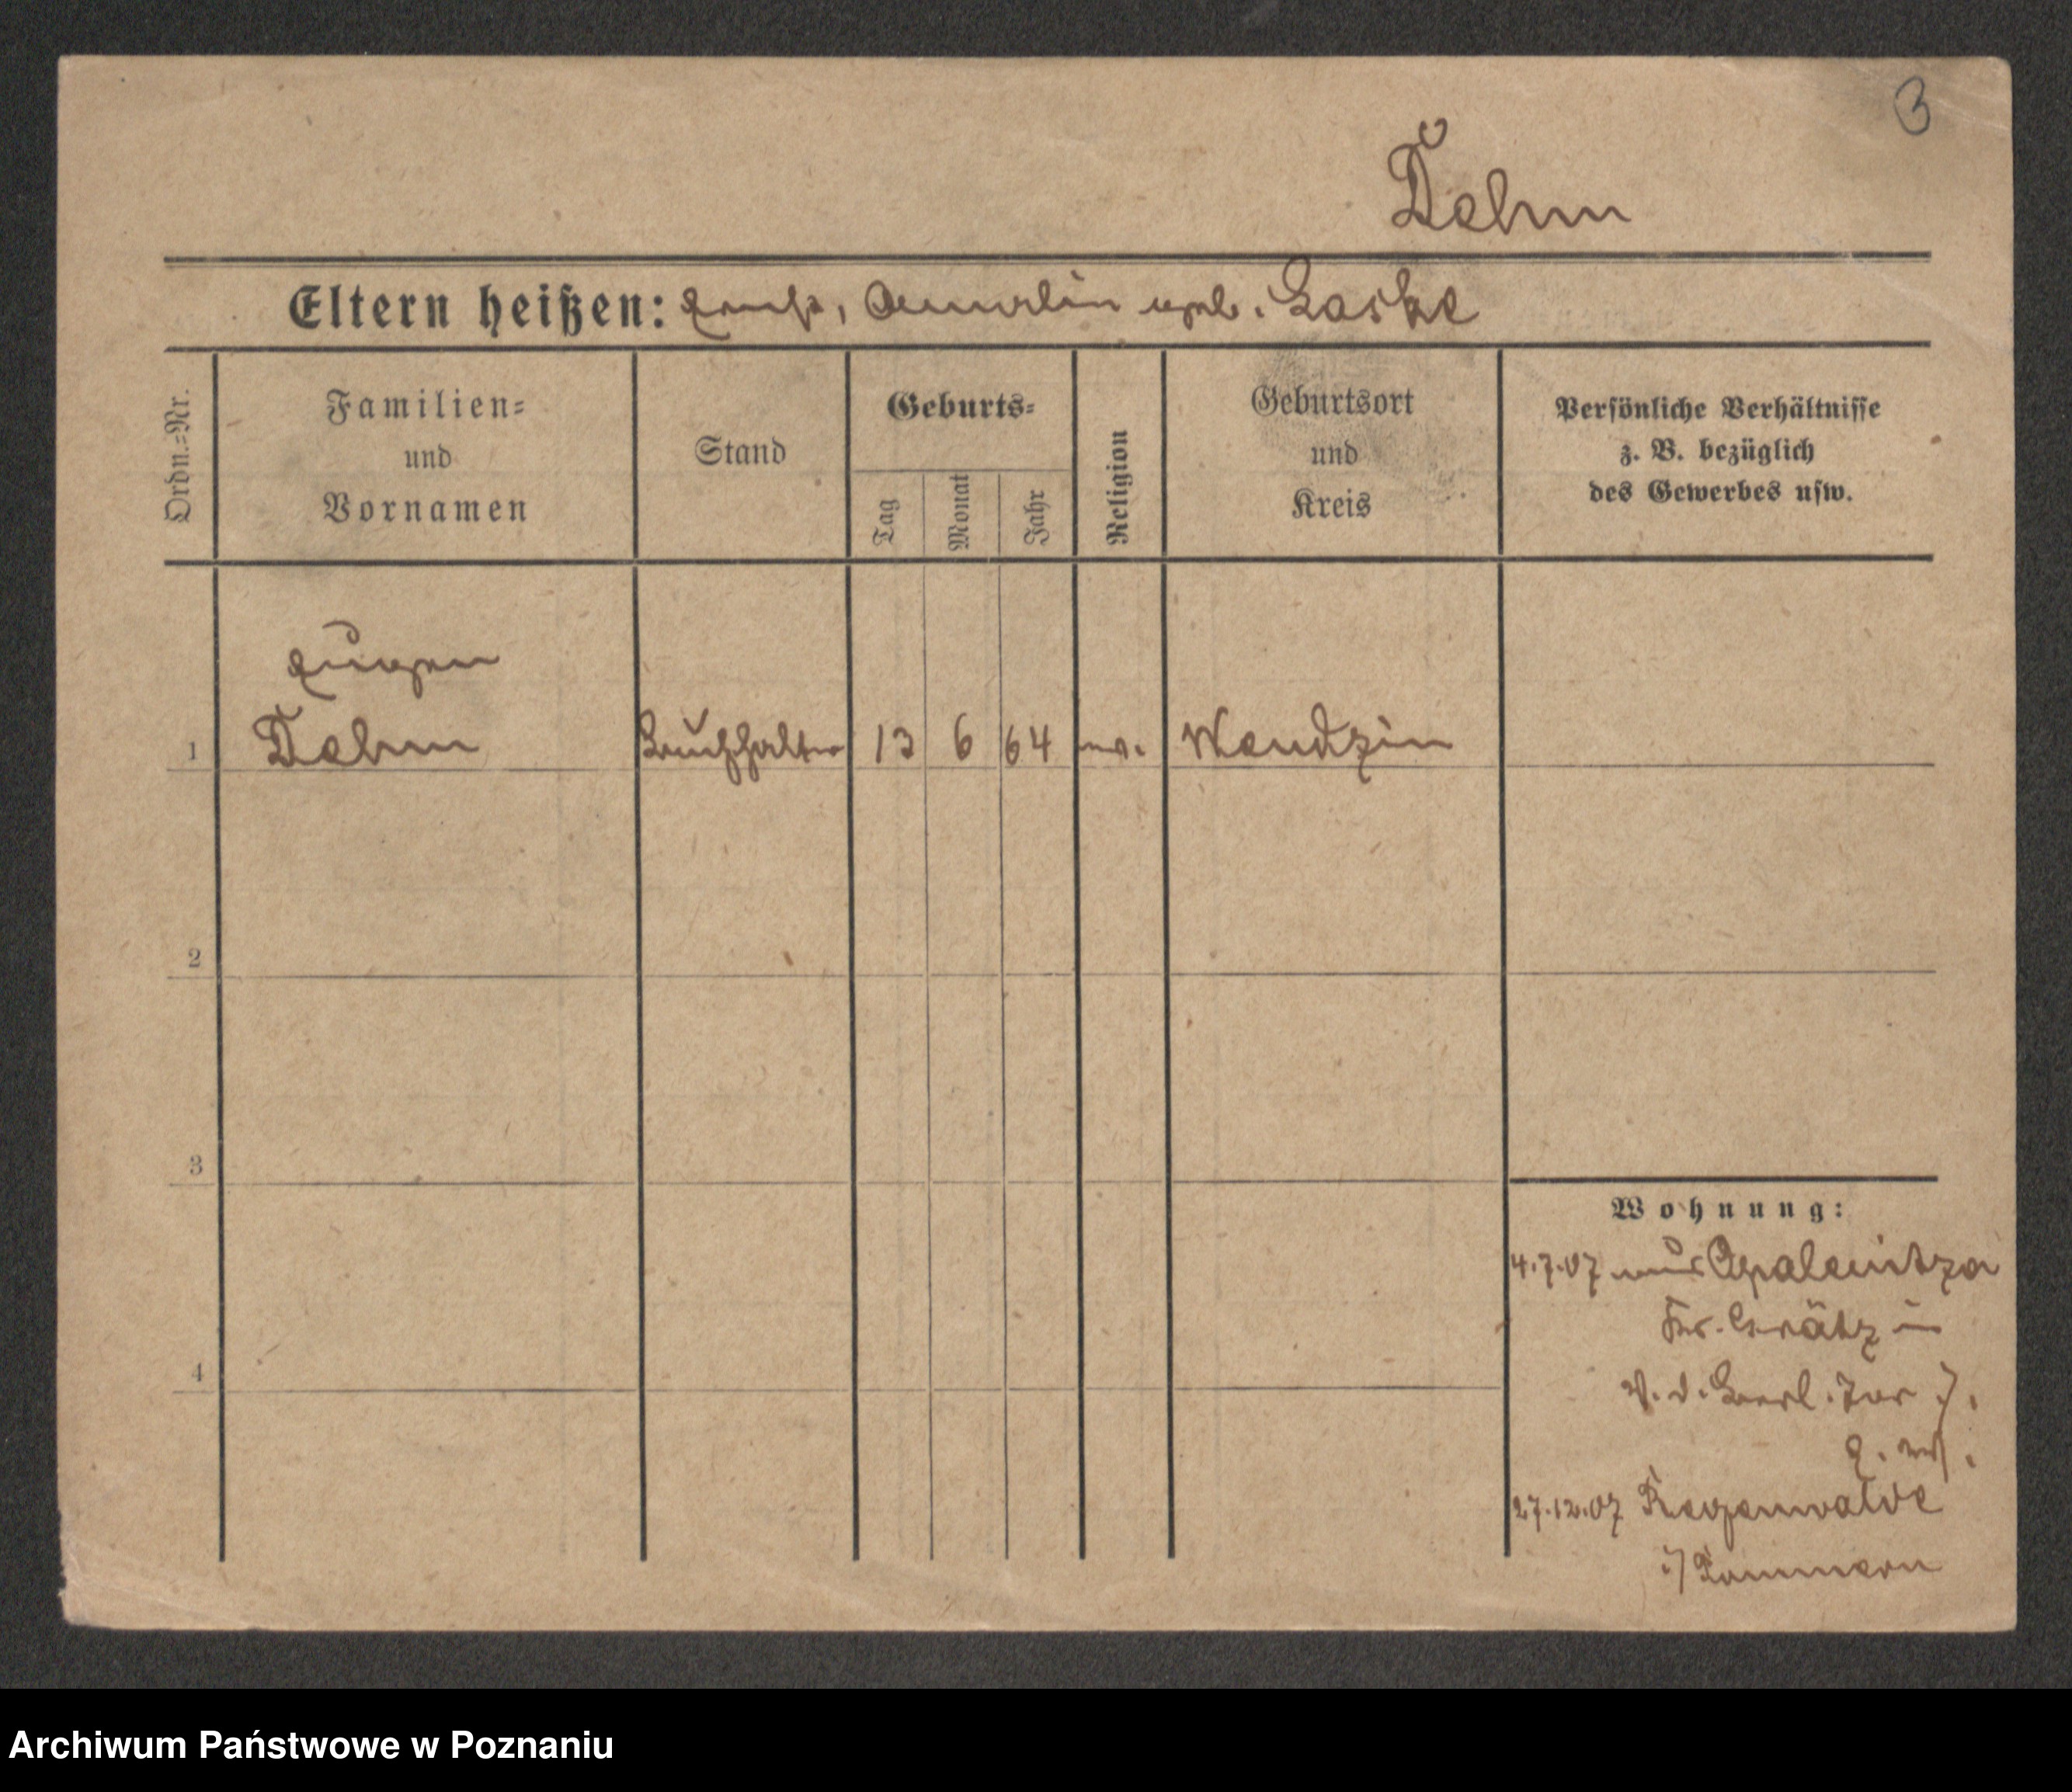 3
Dehm
Eltern heißen: Ernst, Amalin geb. Laske
Ordn.=Nr.
Familien=
und
Vornamen
Stand
Geburts=
Tag
Monat
Jahr
Religion
Geburtsort
und
Kreis
Persönliche Verhältnisse
z. B. bezüglich
des Gewerbes usw.
Eugen
1 Dehm Buchhalter 13 6 64 ev. Wendzin
2
3
4
Wohnung:
4.7.07 aus Opalenitza
Kr. Grätz in
V. d. Berl. Tor 7.
27.12.07 Regenwalde
i/Pommern
Archiwum Państwowe w Poznaniu